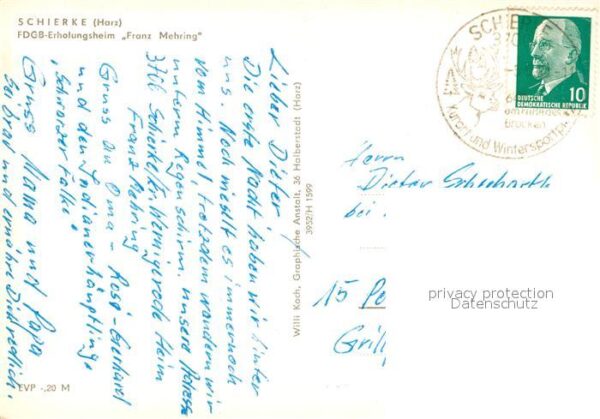 SCHIERKE (Harz)
FDGB-Erholungsheim „Franz Mehring"
Lieber Dieter!
Die erste Nacht haben wir hinter
uns. Noch nieselt es immernoch
vom Himmel, trotzdem wandern wir
unterm Regenschirm. unsere Adresse
3706 Schierke/Kr. Wernigerode Heim
Franz Mehring
Gruss an Oma - Rosi - Gerhard
und den Indianerhäuptling,
„Schwarzer Falke"
Gruss Mama und Papa
Sei brav und ernähre Dich redlich.
EVP -,20 M
Willi Koch, Graphische Anstalt, 36 Halberstadt (Harz)
3952/H 1599
SCHIERKE
370
Kurort und Wintersportpl
Brocken
10
DEUTSCHE
DEMOKRATISCHE REPUBLIK
Herrn
Dieter
bei.
15
privacy protection
Datenschutz